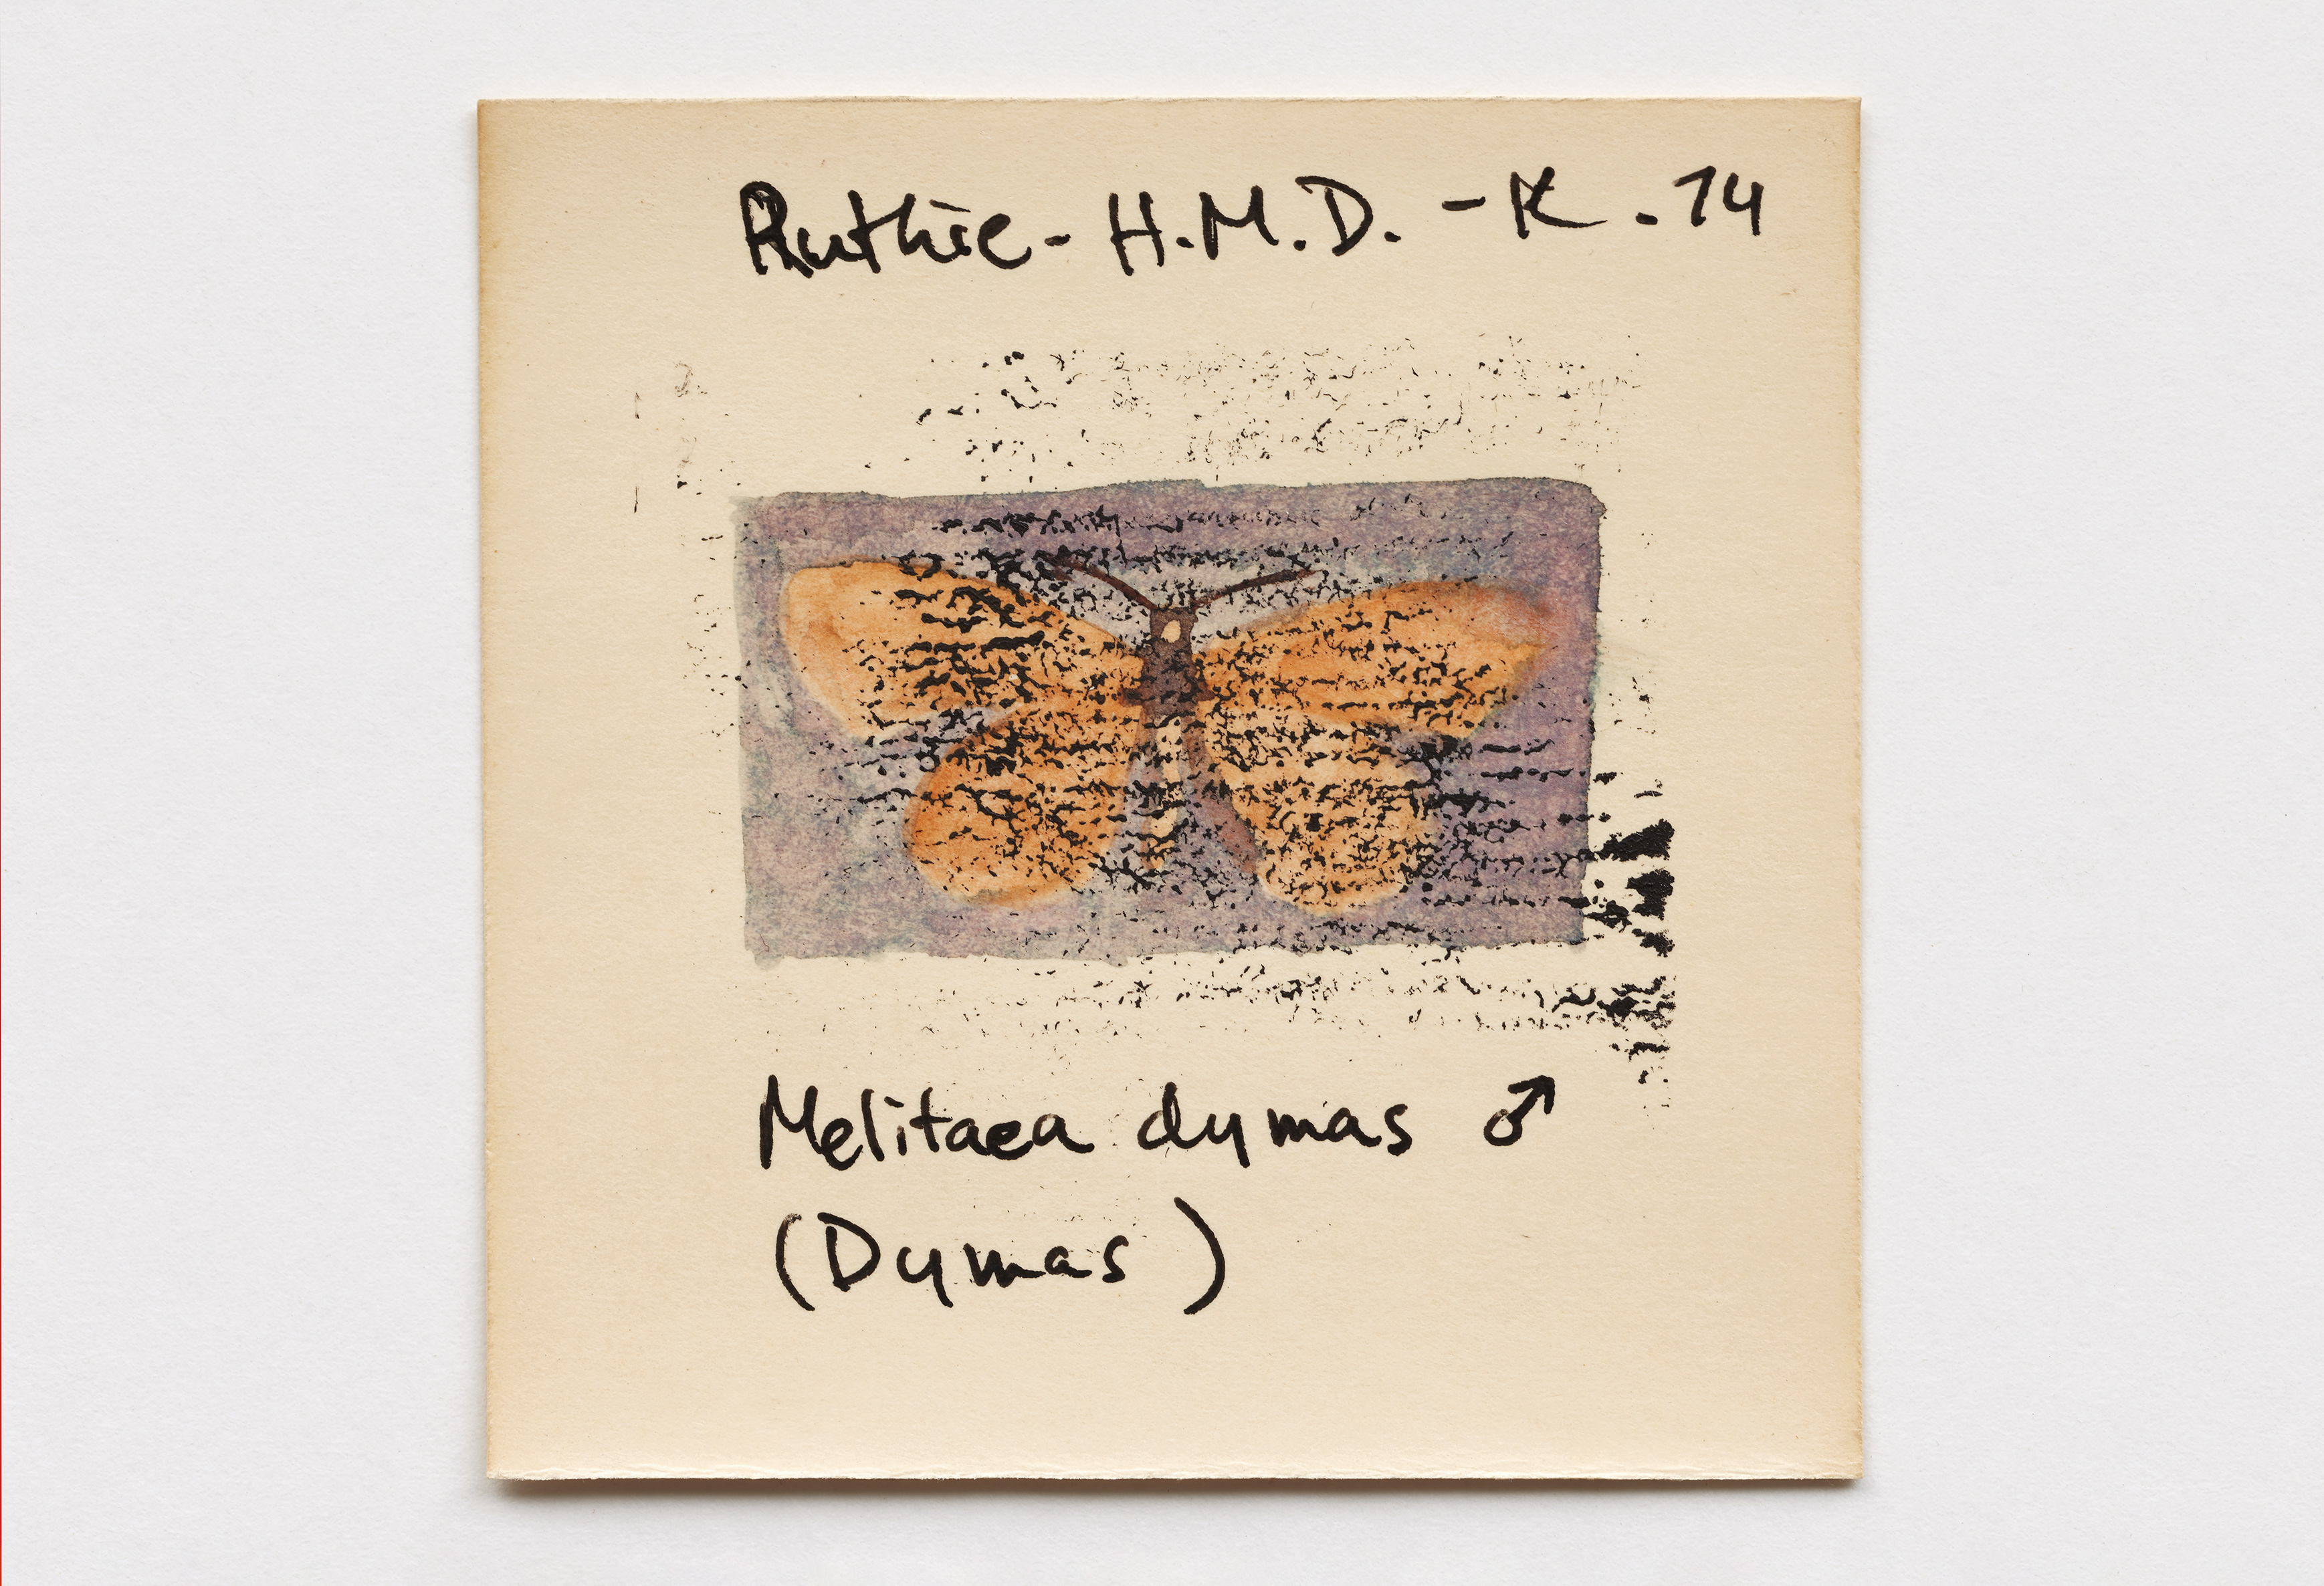 Ruthie - H.M.D. - K - 74
Melitaea dymas ♂
(Dymas)